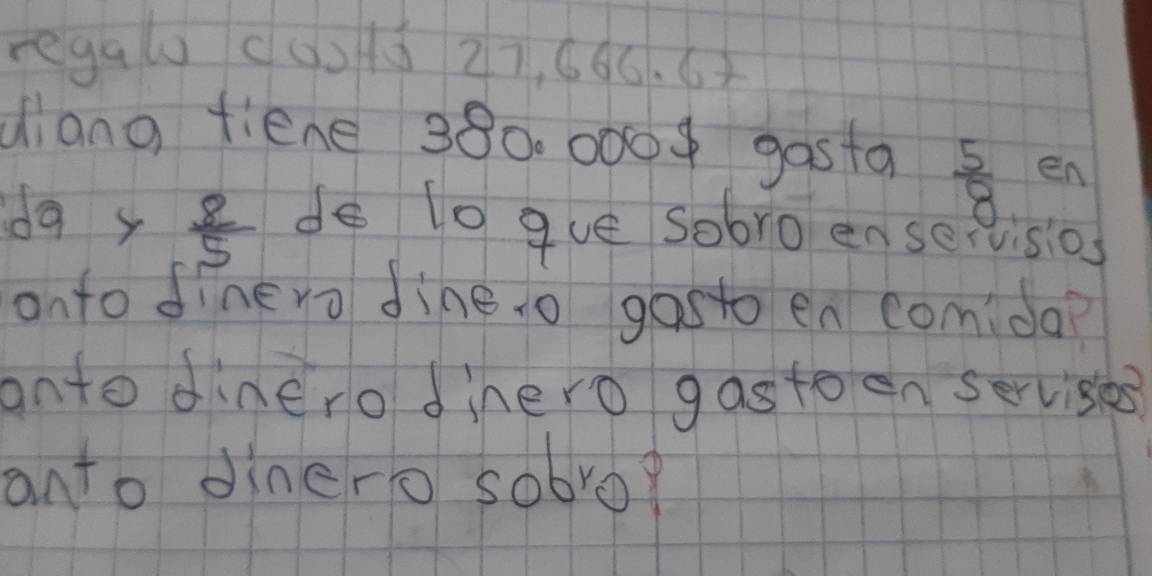 regalo costó 27,666.67
diana tiene 380.000$ gasta 5/8 en
ida y 2/5 de lo que sobro en servisios
anto dinero dinero gasto en comida?
anto dinero dinero gasto en servisios?
anto dinero sobro?